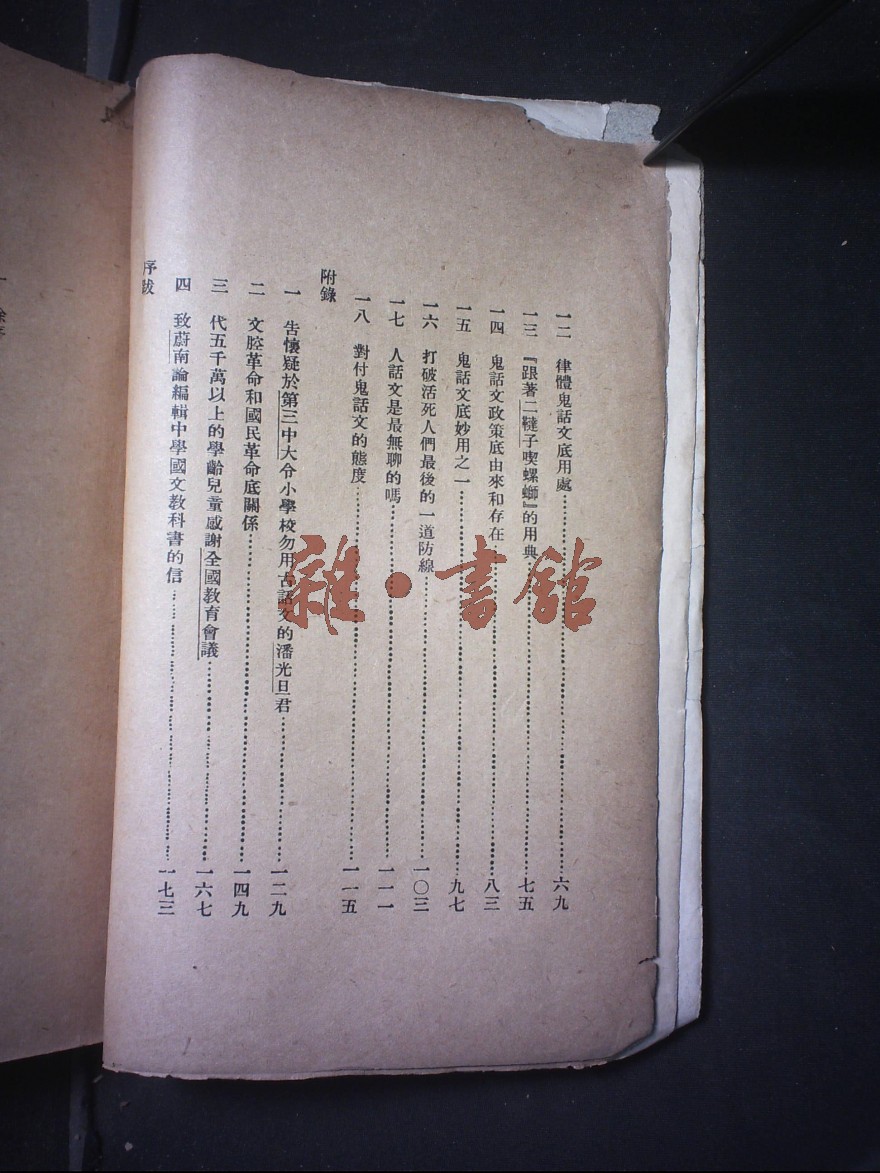 一二　律體鬼話文底用處……六九
一三　『跟著二韃子喫螺螄』的用典……七五
一四　鬼話文政策底由來和存在……八三
一五　鬼話文底妙用之一……九七
一六　打破活死人們最後的一道防線……一〇三
一七　人話文是最無聊的嗎……一一一
一八　對付鬼話文的態度……一一五
附錄
一　告懷疑於第三中大令小學校勿用古話文的潘光旦君……一二九
二　文腔革命和國民革命底關係……一四九
三　代五千萬以上的學齡兒童感謝全國教育會議……一六七
四　致蔚南論編輯中學國文教科書的信……一七三
序跋
雜·書館